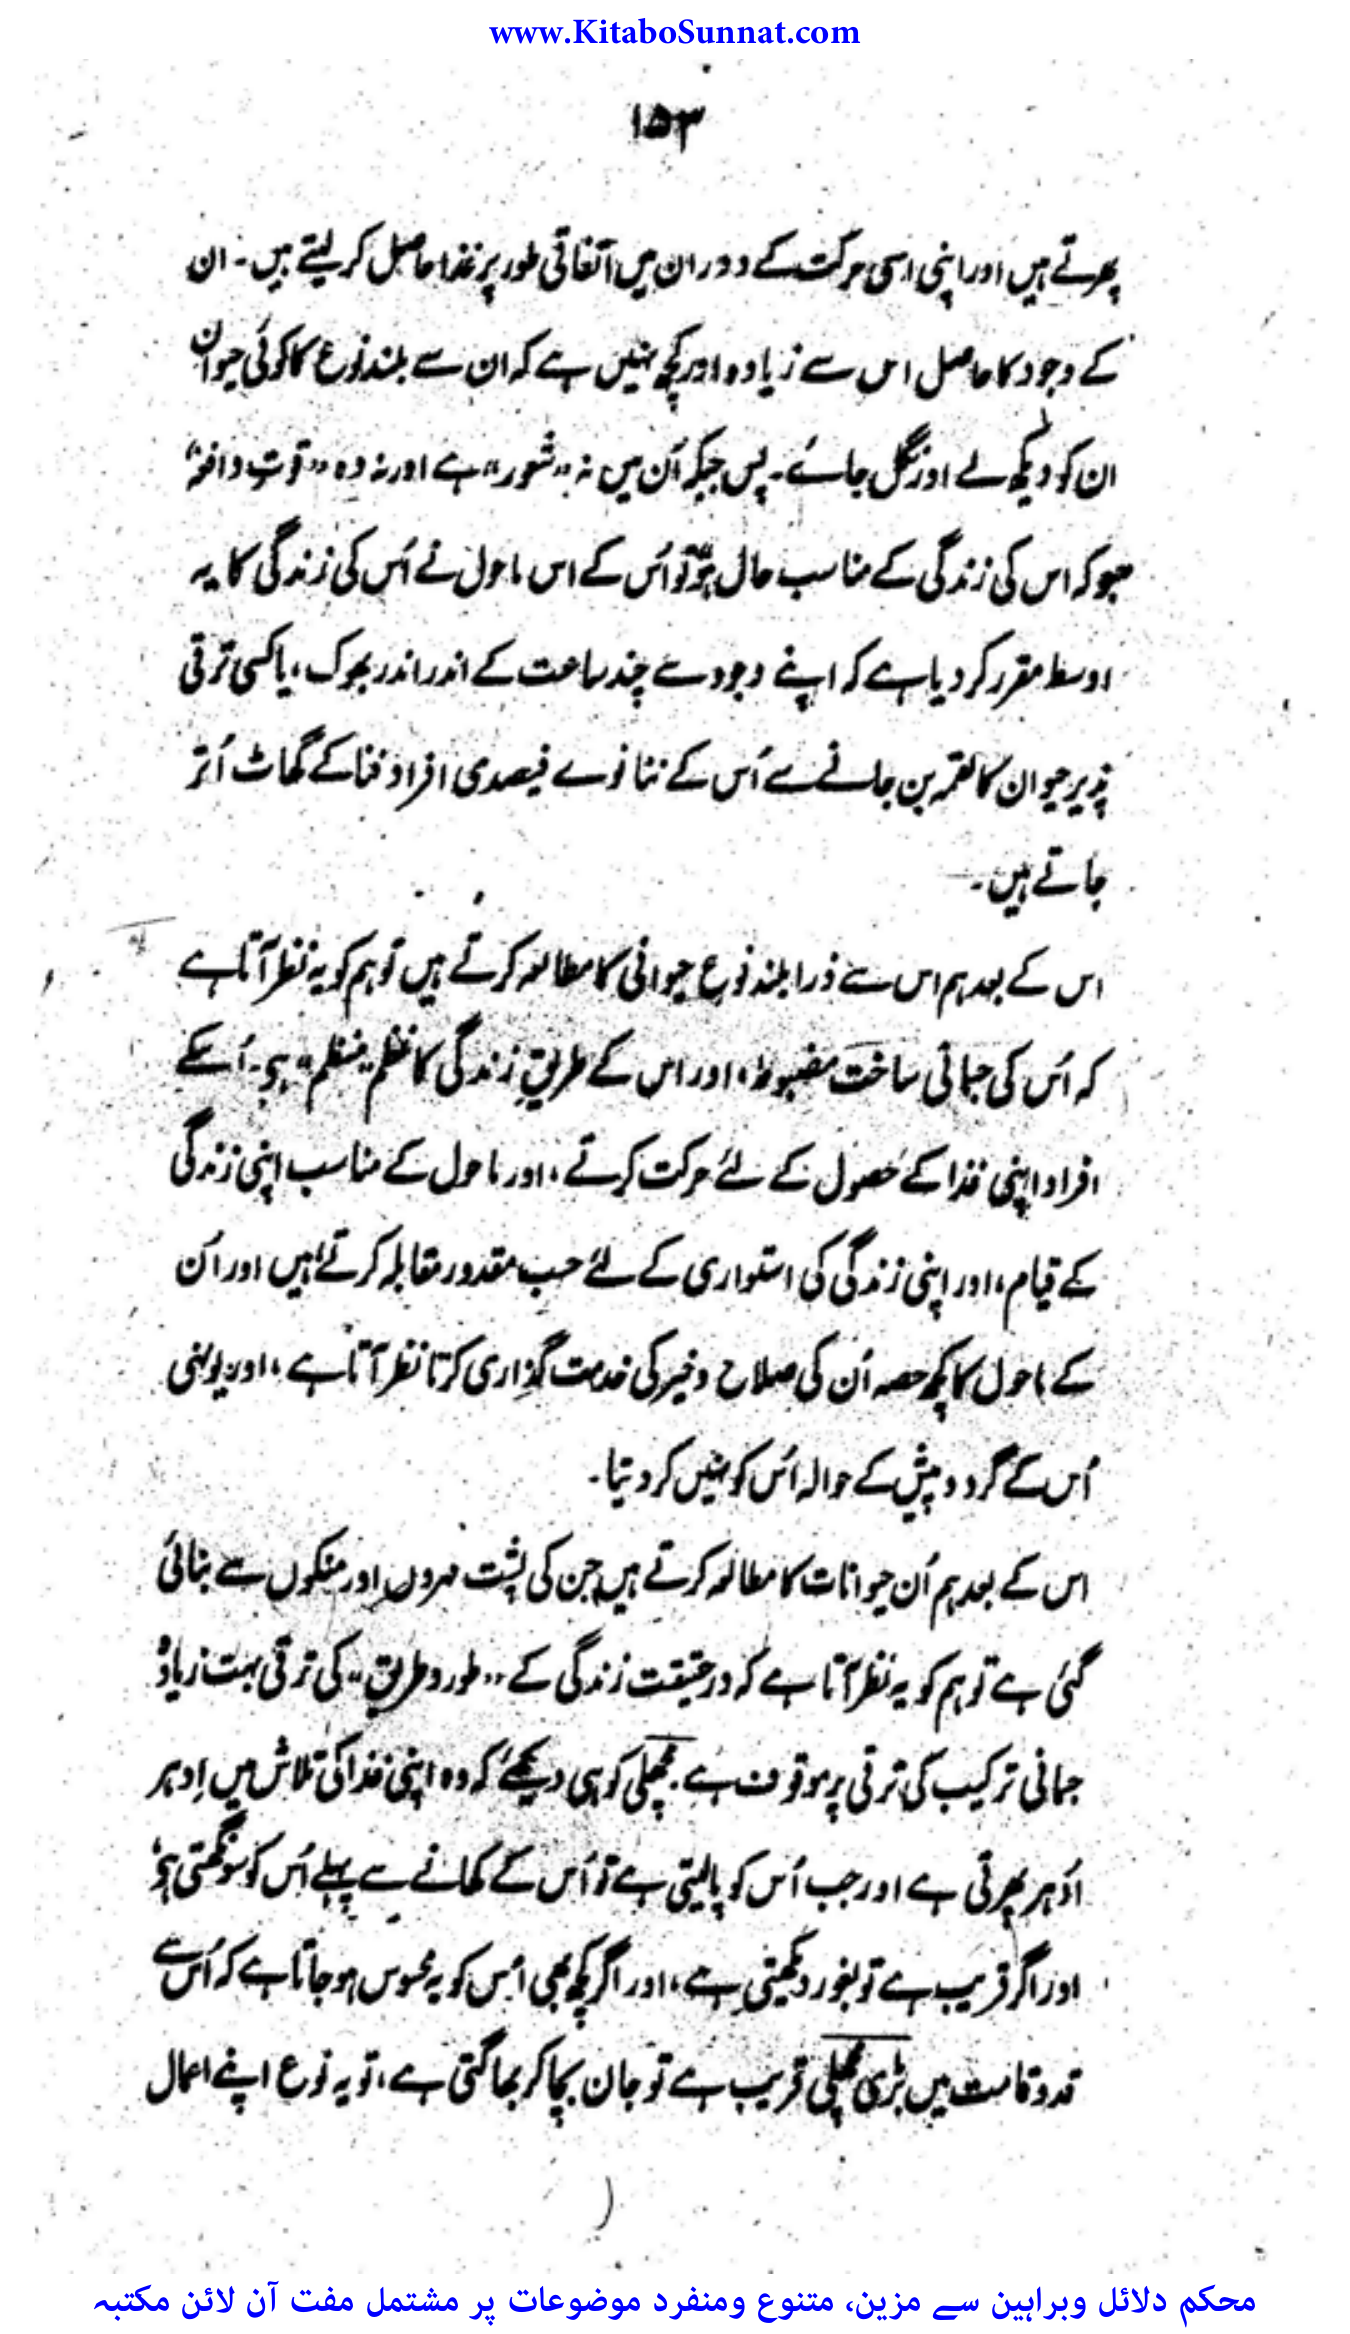 www.KitaboSunnat.com
۱۵۳
پھرتے ہیں اور اپنی اسی حرکت کے دوران میں اتفاقی طور پر غذا حاصل کر لیتے ہیں۔ ان
کے وجود کا حاصل اس سے زیادہ اور کچھ نہیں ہے کہ ان سے بلند نوع کا کوئی حیوان
ان کو دیکھ لے اور نگل جائے۔ پس جبکہ اُن میں نہ "شعور" ہے اور نہ وہ "قوتِ دافعہ"
جو کہ اس کی زندگی کے مناسب حال ہو تو اُس کے اس ماحول نے اُس کی زندگی کا یہ
اوسط مقرر کر دیا ہے کہ اپنے وجود سے چند ساعت کے اندر اندر بھوک، یا کسی ترقی
پذیر حیوان کا لقمہ بن جانے سے اُس کے ننانوے فیصدی افراد فنا کے گھاٹ اُتر
جاتے ہیں۔
اس کے بعد ہم اس سے ذرا بلند نوع حیوانی کا مطالعہ کرتے ہیں تو ہم کو یہ نظر آتا ہے
کہ اُس کی جسمانی ساخت مضبوط، اور اس کے طریقِ زندگی کا نظم "منظم" ہے۔ اُسکے
افراد اپنی غذا کے حصول کے لئے حرکت کرتے، اور ماحول کے مناسب اپنی زندگی
کے قیام، اور اپنی زندگی کی استواری کے لئے حسب مقدور مقابلہ کرتے ہیں اور اُن
کے ماحول کا کچھ حصہ اُن کی صلاح و خیر کی خدمت گذاری کرتا نظر آتا ہے، اور یونہی
اُس کے گرد و پیش کے حوالہ اُس کو نہیں کر دیتا۔
اس کے بعد ہم اُن حیوانات کا مطالعہ کرتے ہیں جن کی پشت مہروں اور منکوں سے بنائی
گئی ہے تو ہم کو یہ نظر آتا ہے کہ درحقیقت زندگی کے "طور و طریق" کی ترقی بہت زیادہ
جسمانی ترکیب کی ترقی پر موقوف ہے۔ مچھلی کو ہی دیکھئے کہ وہ اپنی غذا کی تلاش میں اِدہر
اُدہر پھرتی ہے اور جب اُس کو پالیتی ہے تو اُس کے کھانے سے پہلے اُس کو سونگھتی ہے،
اور اگر قریب ہے تو بغور دیکھتی ہے، اور اگر کچھ بھی اس کو یہ محسوس ہو جاتا ہے کہ اُس سے
قد و قامت میں بڑی مچھلی قریب ہے تو جان بچا کر بھاگتی ہے، تو یہ نوع اپنے اعمال
محکم دلائل وبراہین سے مزین، متنوع ومنفرد موضوعات پر مشتمل مفت آن لائن مکتبہ